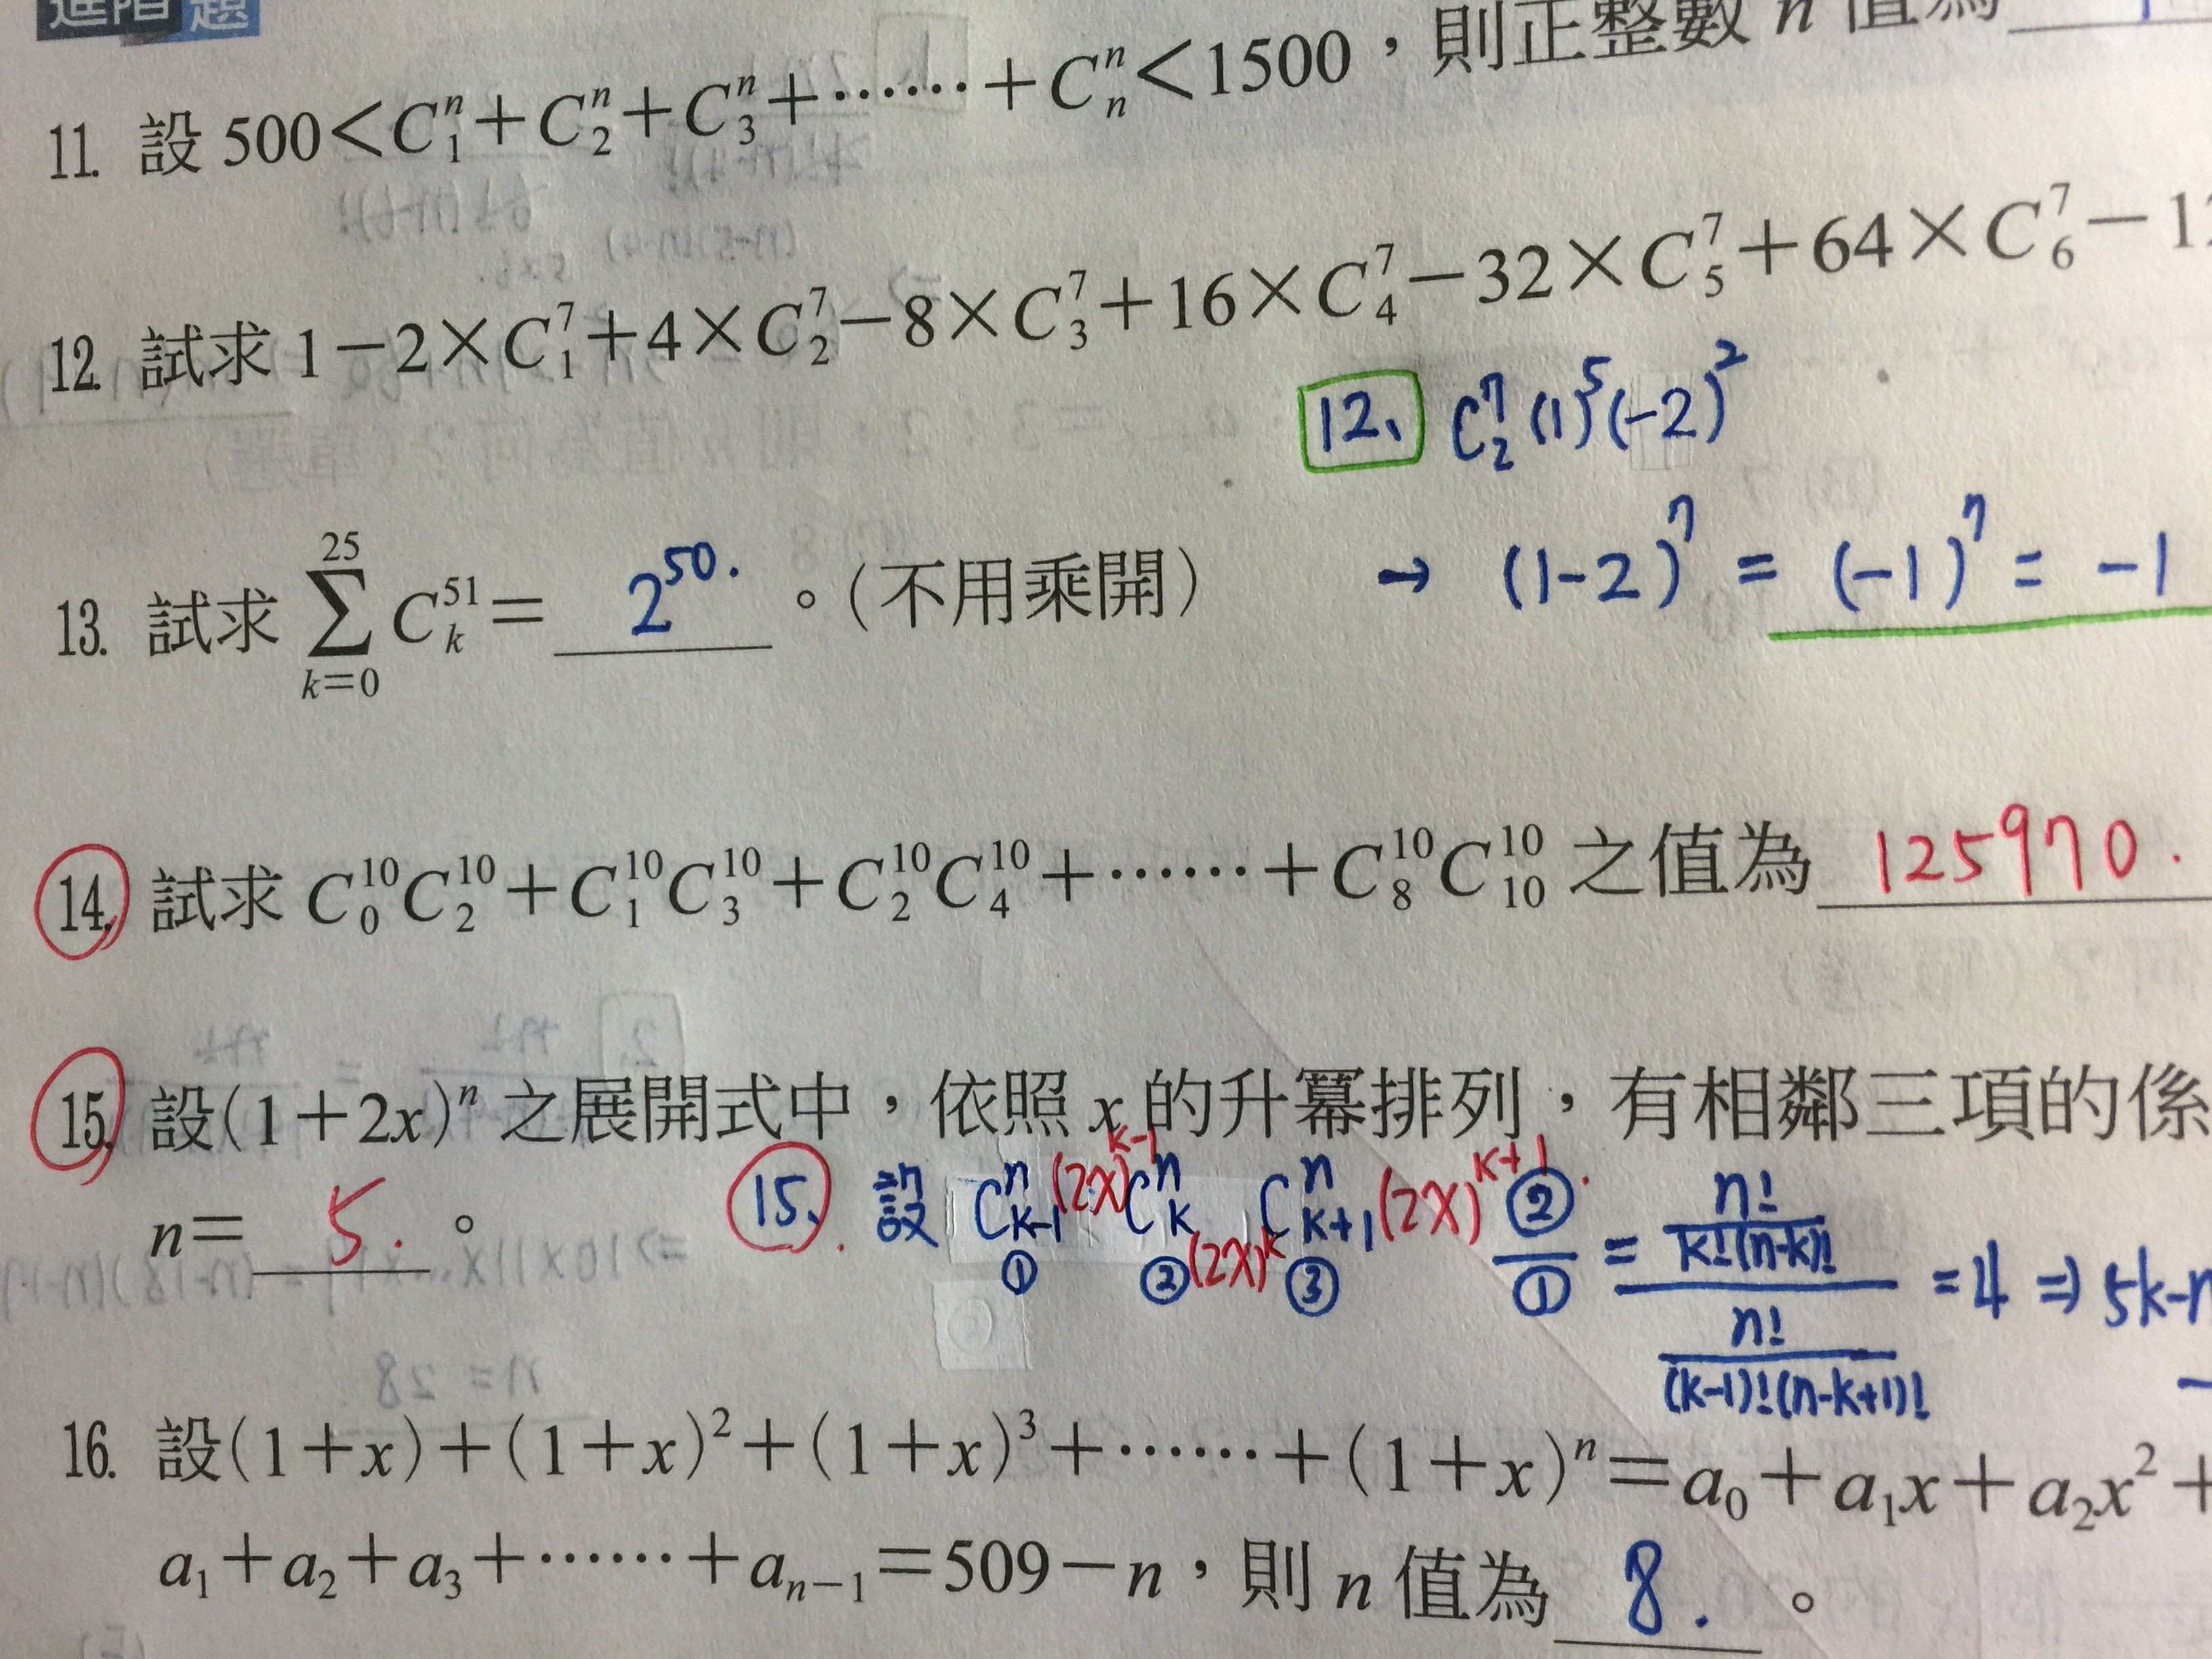 進階題
11. 設 500<C₁ⁿ+C₂ⁿ+C₃ⁿ+……+Cₙⁿ<1500，則正整數 n 值為
12. 試求 1-2×C₁⁷+4×C₂⁷-8×C₃⁷+16×C₄⁷-32×C₅⁷+64×C₆⁷-12
12、 C₂⁷(1)⁵(-2)²
→ (1-2)⁷ = (-1)⁷ = -1
13. 試求 ∑_{k=0}^{25} C_k^{51} = 2⁵⁰. 。(不用乘開)
14. 試求 C₀¹⁰C₂¹⁰+C₁¹⁰C₃¹⁰+C₂¹⁰C₄¹⁰+……+C₈¹⁰C₁₀¹⁰ 之值為 125970.
15. 設(1+2x)ⁿ 之展開式中，依照 x 的升冪排列，有相鄰三項的係
n= 5. 。
15、 設 C_{k-1}^n (2x)^{k-1} C_k^n (2x)^k C_{k+1}^n (2x)^{k+1}.
① ② ③
②/① = (n!/(k!(n-k)!))/(n!/((k-1)!(n-k+1)!)) = 4 ⇒ 5k-n
16. 設(1+x)+(1+x)²+(1+x)³+……+(1+x)ⁿ=a₀+a₁x+a₂x²+
a₁+a₂+a₃+……+aₙ₋₁=509-n，則 n 值為 8. 。